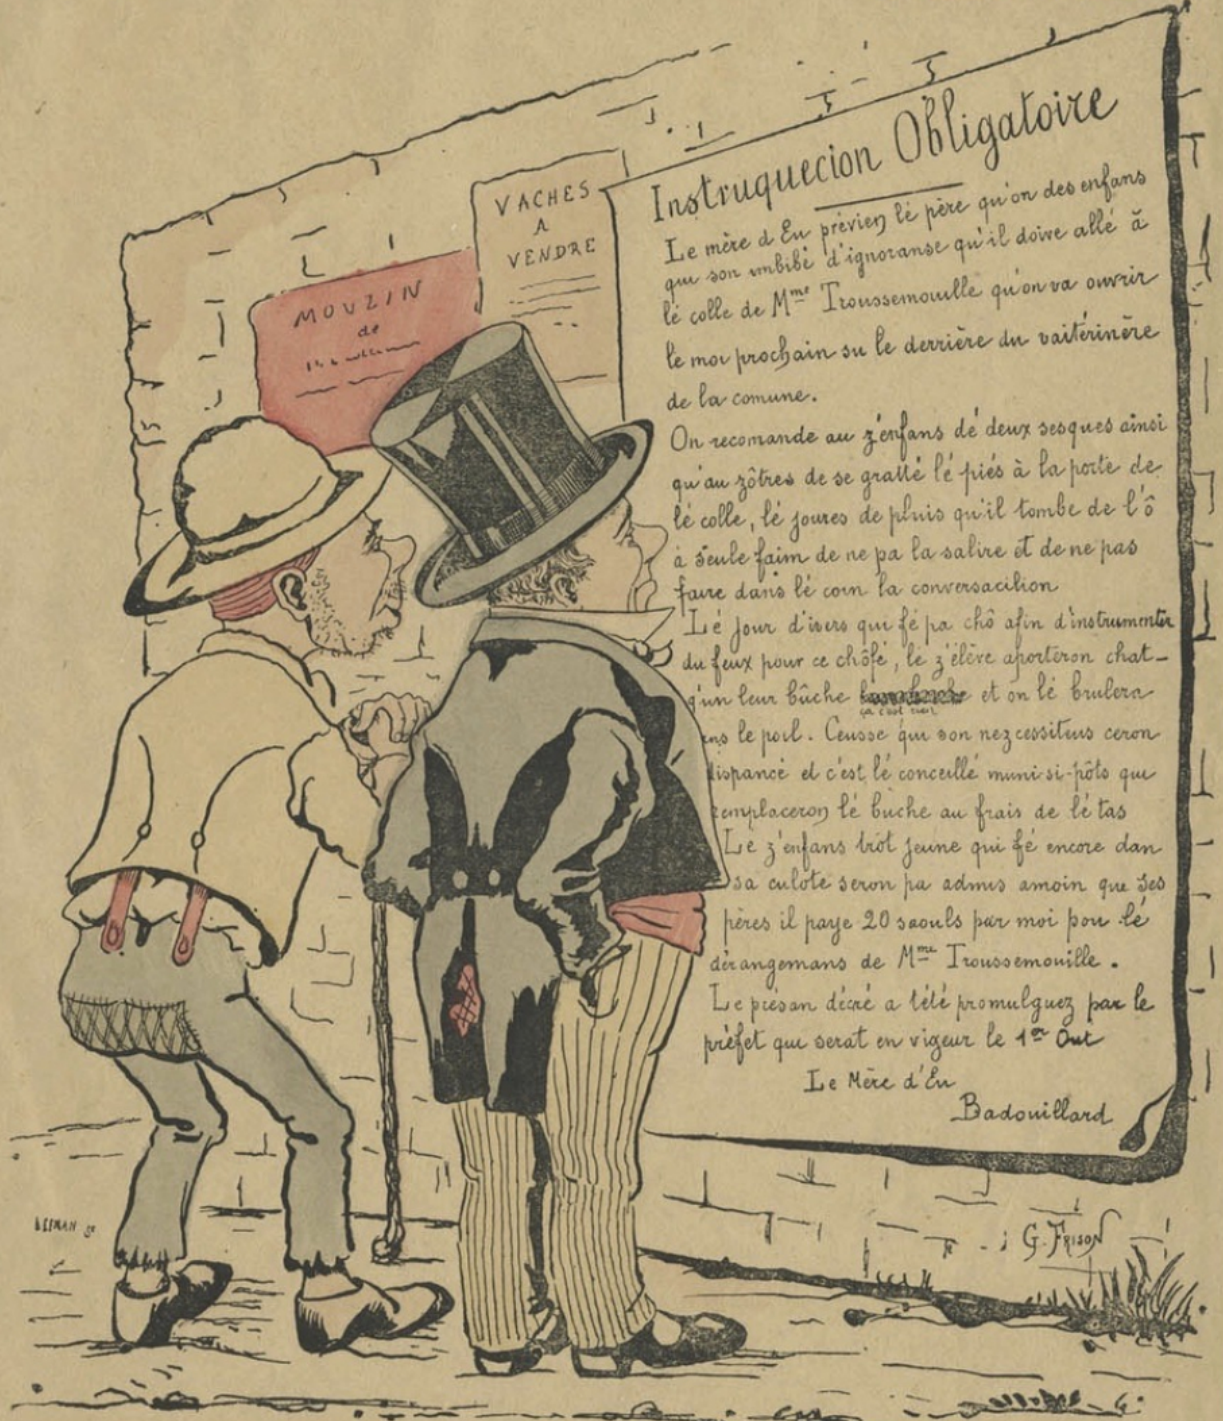 VACHES
A
VENDRE
MOUZIN
de
Instruquecion Obligatoire
Le mère d Eu prévien lé père qu'on des enfans
qui son imbibé d'ignoranse qu'il doive allé à
lé colle de Mme Troussemouille qu'on va ouvrir
le moi prochain su le derrière du vaitérinère
de la comune.
On recomande au z'enfans dé deux sesques ainsi
qu'au zôtres de se gratté lé piés à la porte de
lé colle, lé joures de pluis qu'il tombe de l'ô
à seule faim de ne pa la salire et de ne pas
faire dans lé coin la conversacilion
Lé jour d'ivers qui fé pa chô afin d'instrumenter
du feux pour ce chôfé, lé z'élève aporteron chat-
q'un leur bûche et on lé brulera
ens le poil. Ceusse qui son nezcessiteus ceron
dispancé et c'est lé conceillé muni-si-pôts qui
remplaceron lé bûche au frais de lé tas
Le z'enfans trot jeune qui fé encore dan
sa culote seron pa admis amoin que ses
pères il paye 20 saouls par moi pou lé
dérangemans de Mme Troussemouille.
Le présan décré a tété promulguez par le
préfet qui serat en vigeur le 1er Out
Le Mère d'Eu
Badouillard
G. FRISON